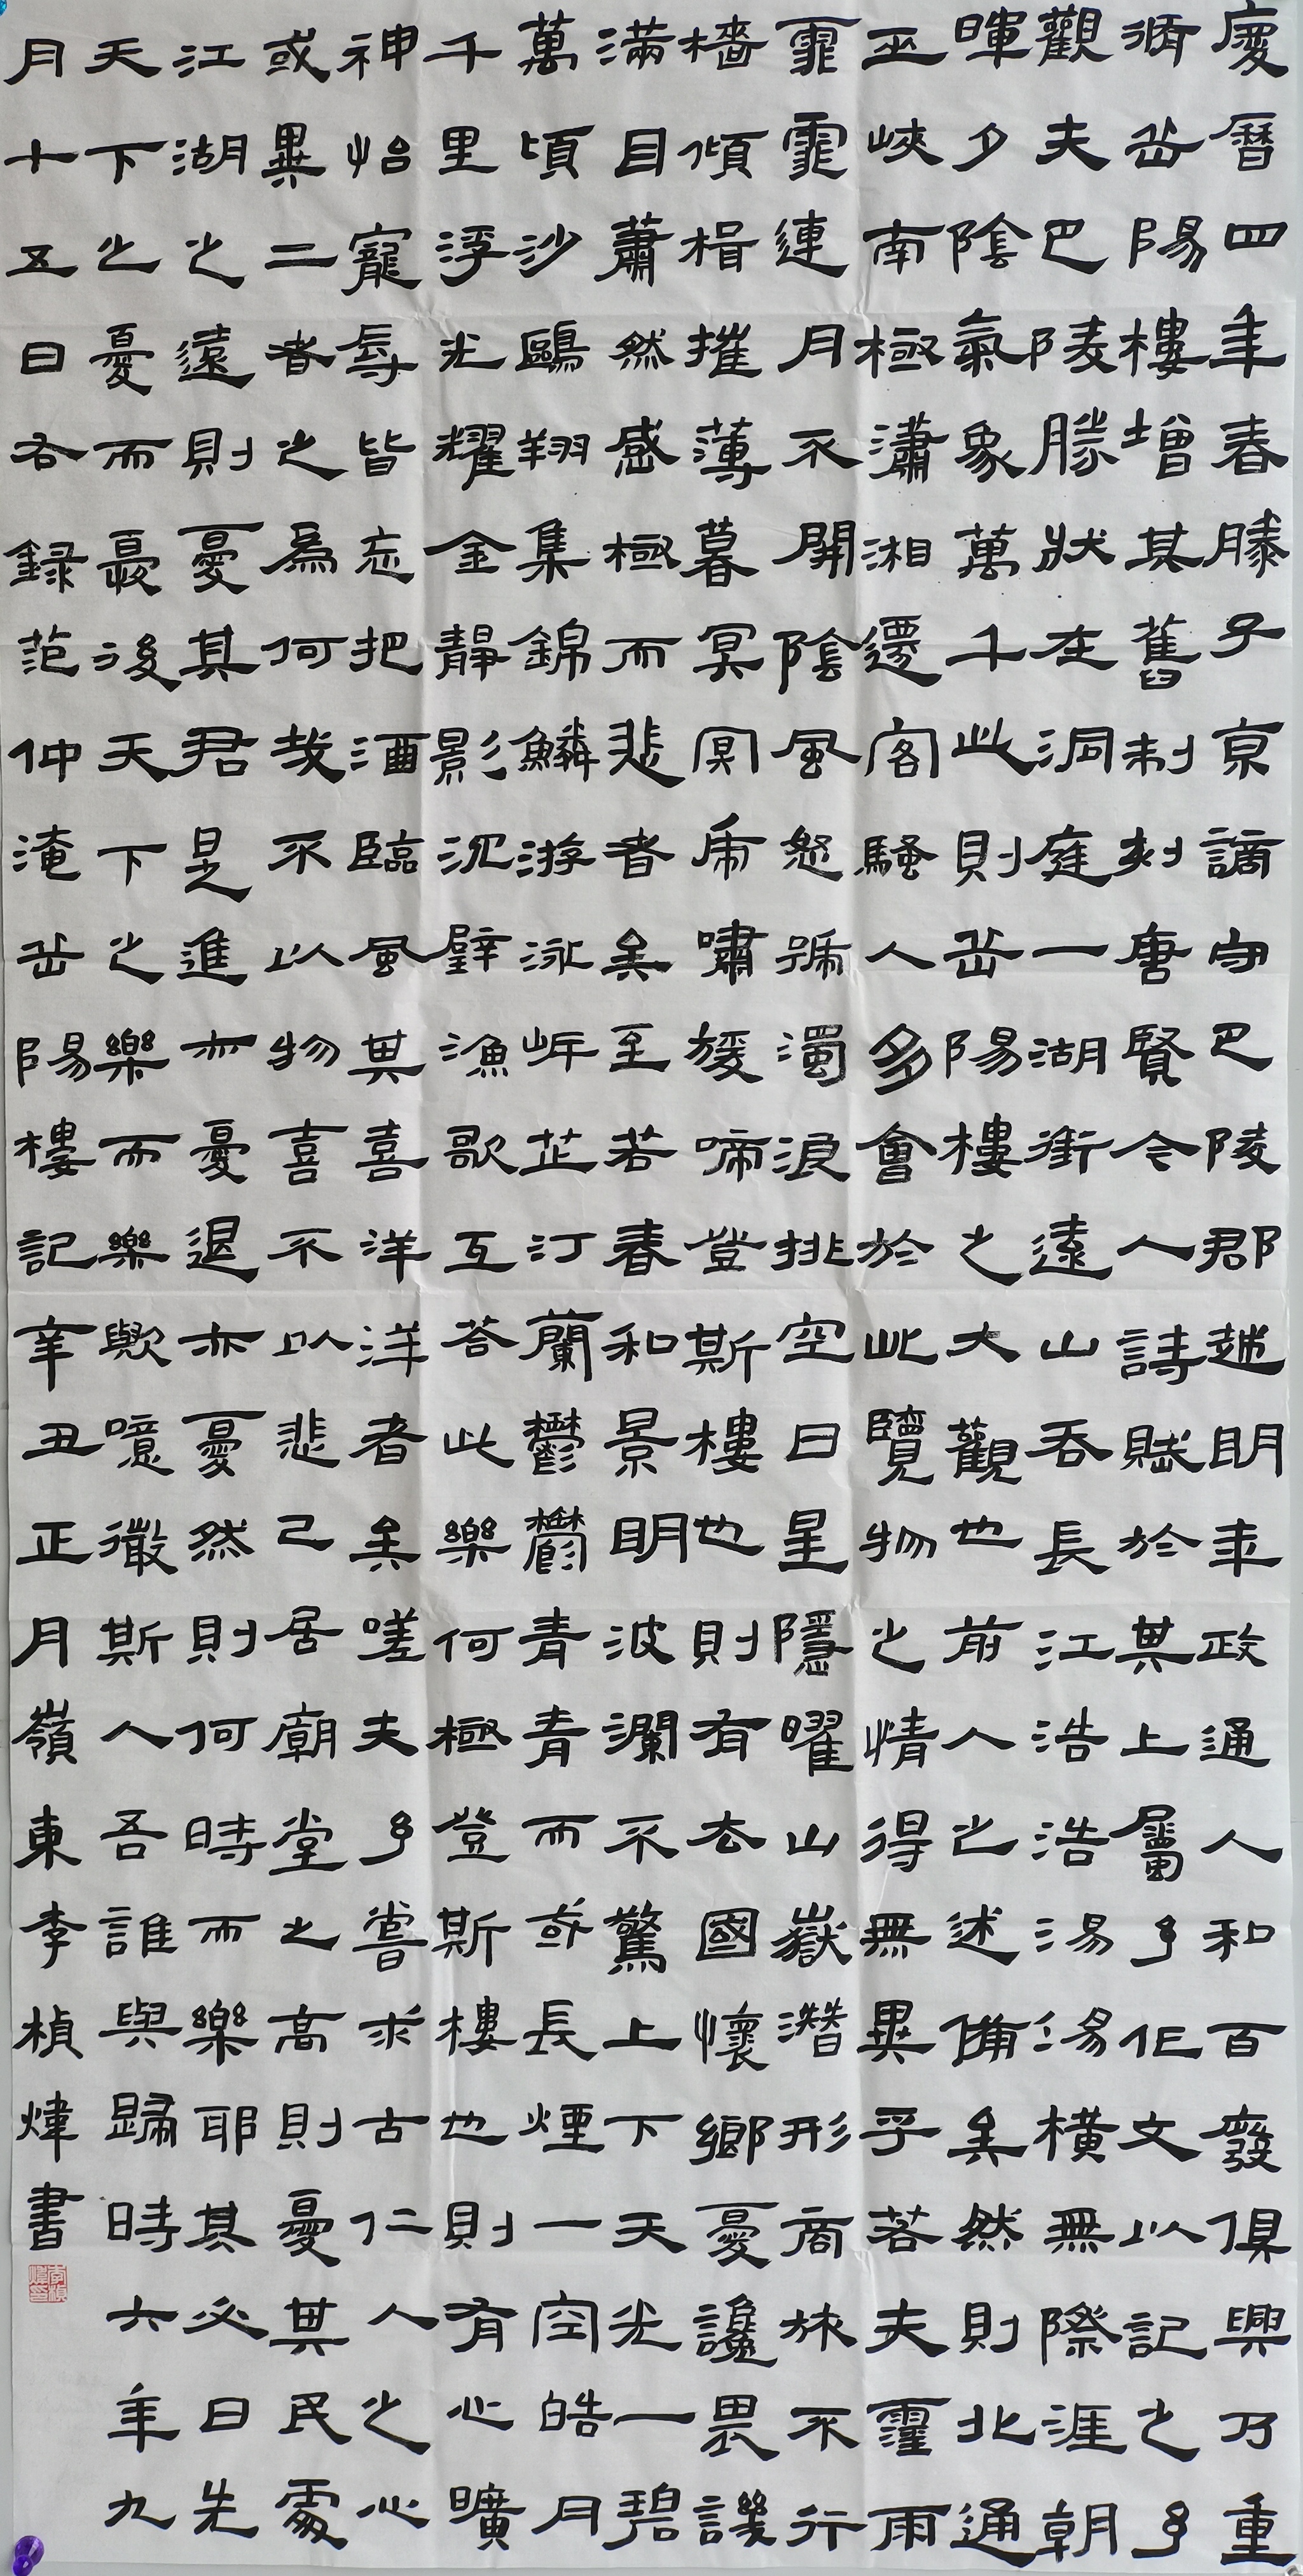 慶曆四年春滕子京謫守巴陵郡越明年政通人和百廢俱興乃重
脩岳陽樓增其舊制刻唐賢今人詩賦於其上屬予作文以記之予
觀夫巴陵勝狀在洞庭一湖銜遠山吞長江浩浩湯湯橫無際涯朝
暉夕陰氣象萬千此則岳陽樓之大觀也前人之述備矣然則北通
巫峽南極瀟湘遷客騷人多會於此覽物之情得無異乎若夫霪雨
霏霏連月不開陰風怒號濁浪排空日星隱曜山嶽潛形商旅不行
檣傾楫摧薄暮冥冥虎嘯猨啼登斯樓也則有去國懷鄉憂讒畏譏
滿目蕭然感極而悲者矣至若春和景明波瀾不驚上下天光一碧
萬頃沙鷗翔集錦鱗游泳岸芷汀蘭鬱鬱青青而或長煙一空皓月
千里浮光耀金靜影沉璧漁歌互答此樂何極登斯樓也則有心曠
神怡寵辱皆忘把酒臨風其喜洋洋者矣嗟夫予嘗求古仁人之心
或異二者之為何哉不以物喜不以悲己居廟堂之高則憂其民處
江湖之遠則憂其君是進亦憂退亦憂然則何時而樂耶其必曰先
天下之憂而憂後天下之樂而樂歟噫微斯人吾誰與歸時六年九
月十五日右錄范仲淹岳陽樓記辛丑正月嶺東李楨煒書